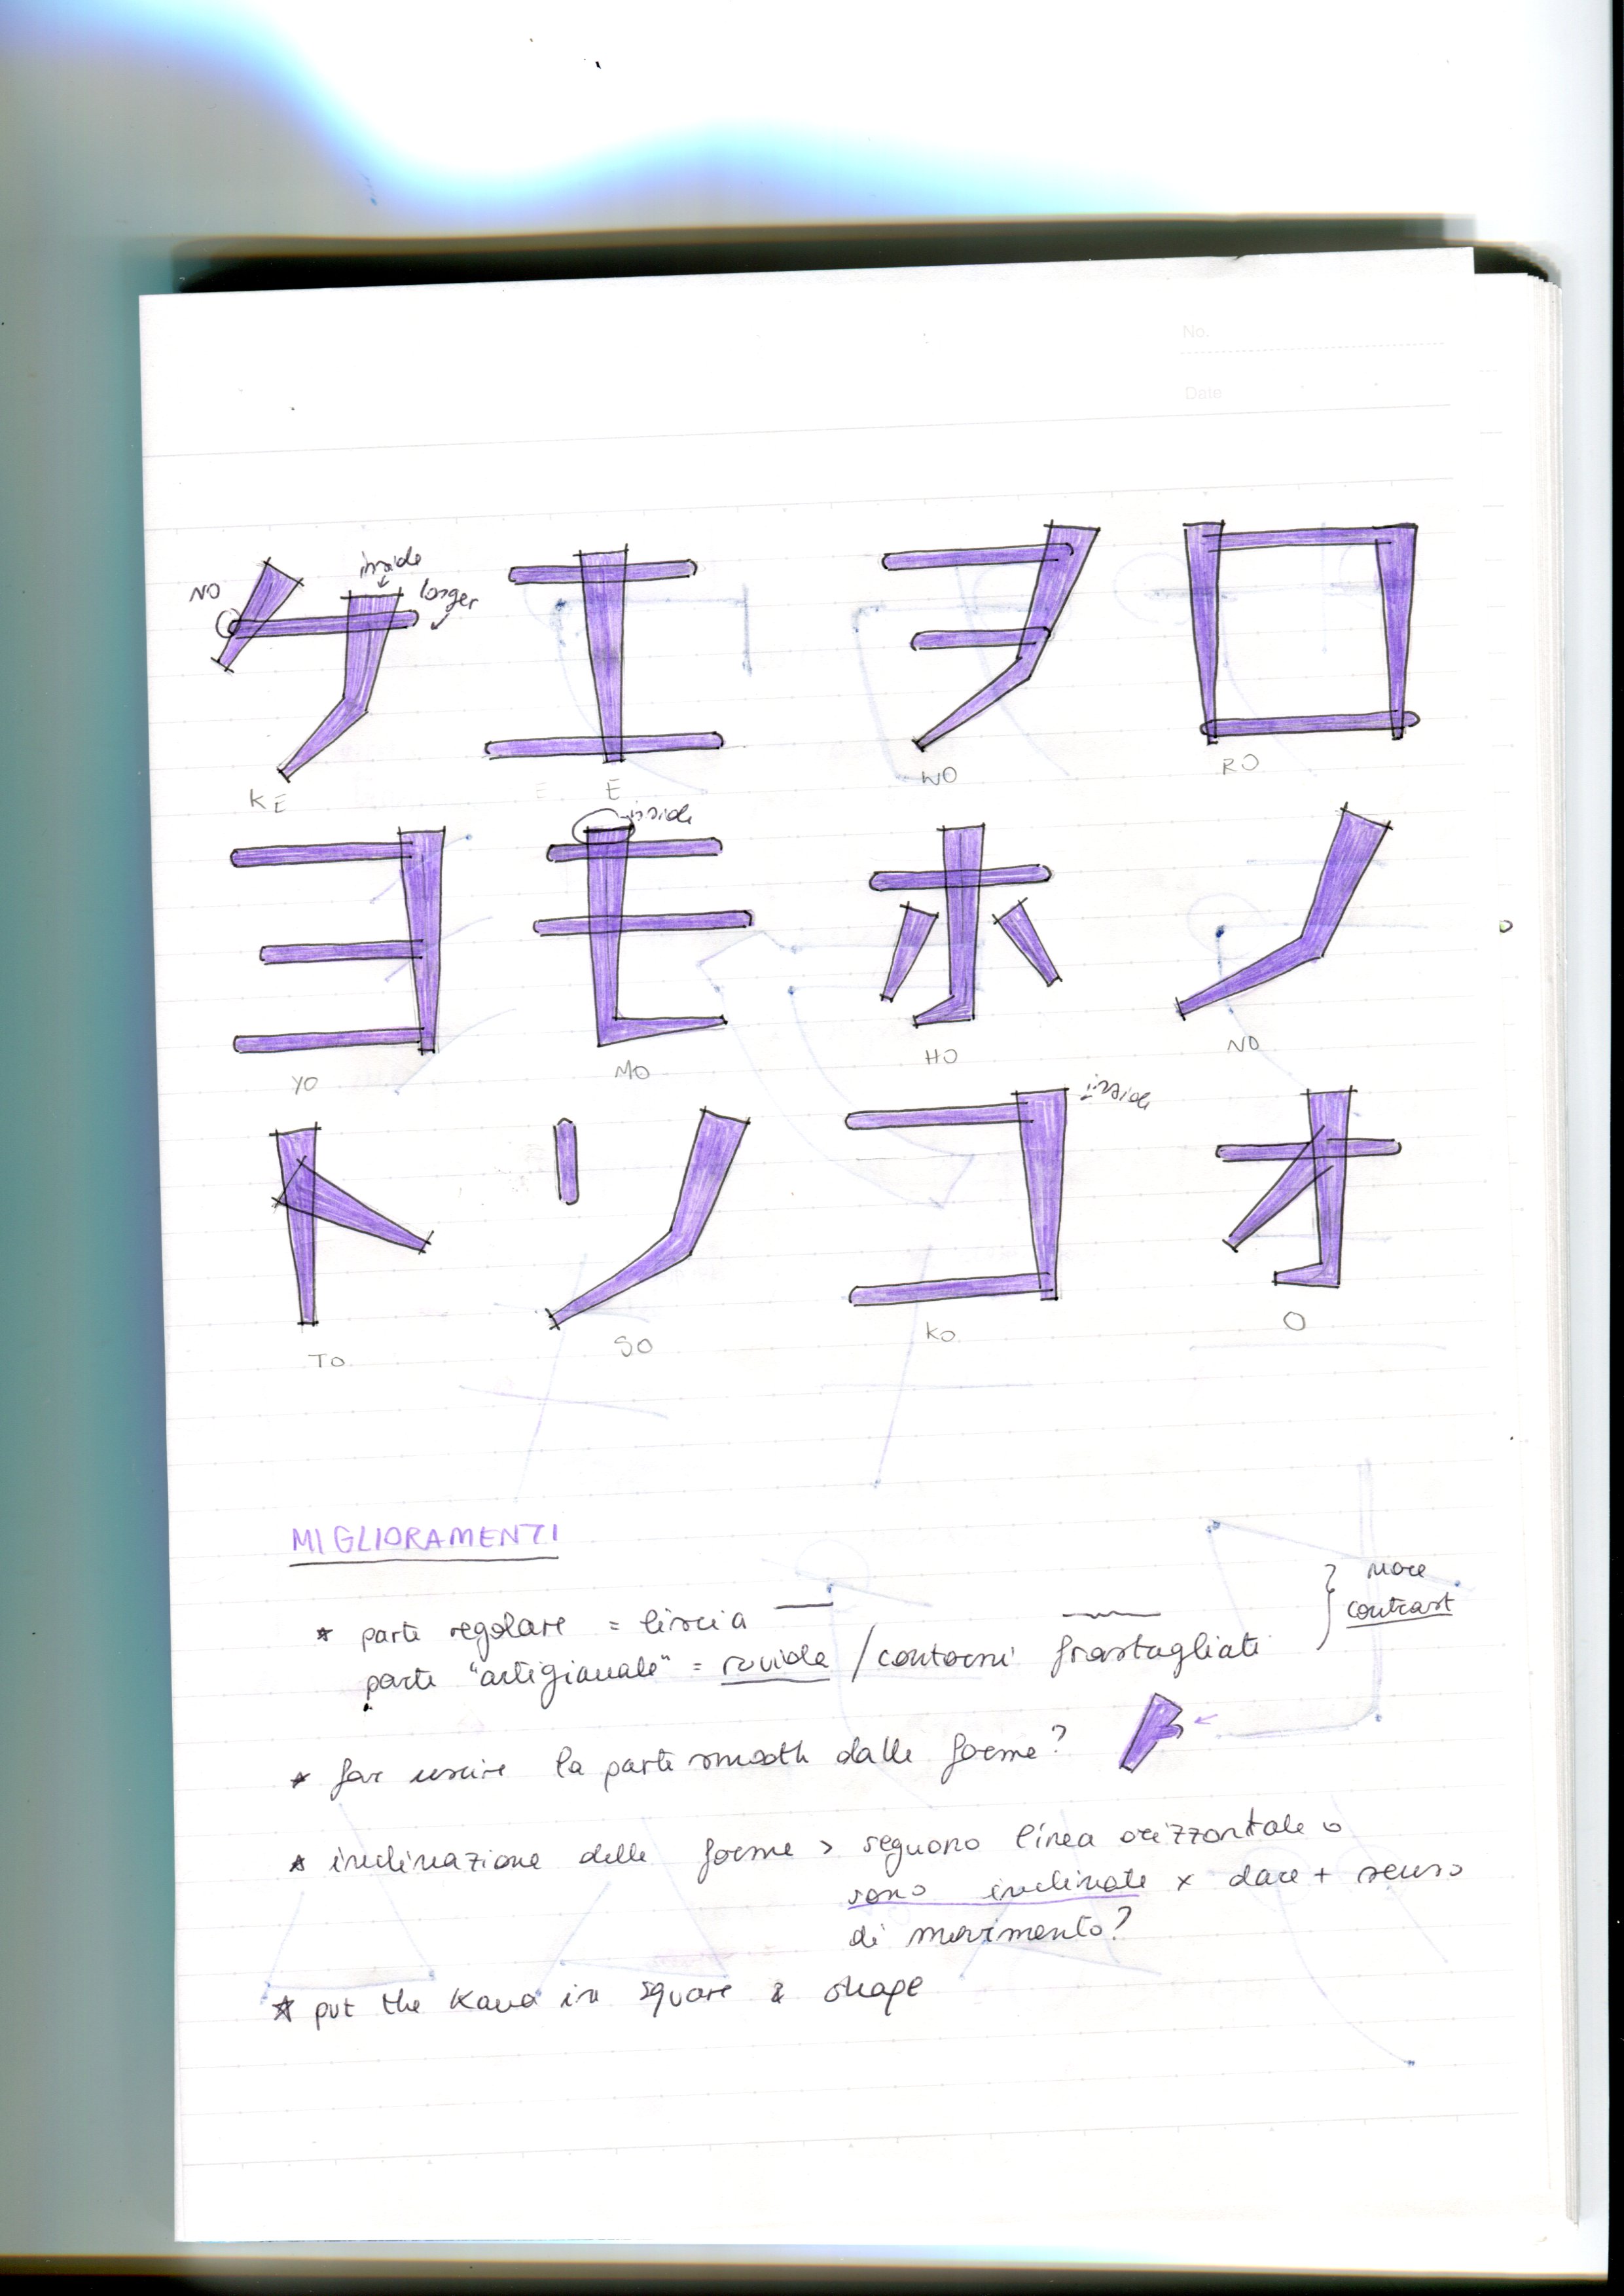 No.
Date
NO
inside
longer
ケ エ ヲ ロ
KE E WO RO
inside
ヨ モ ホ ノ
YO MO HO NO
inside
ト ソ コ オ
TO SO KO O
MIGLIORAMENTI
* parte regolare = liscia
parte "artigianale" = ruvida / contorni frastagliati
} more
contrast
* far uscire la parte smooth dalle forme?
* inclinazione delle forme > seguono linea orizzontale o
sono inclinate x dare + senso
di movimento?
* put the Kana in square & shape